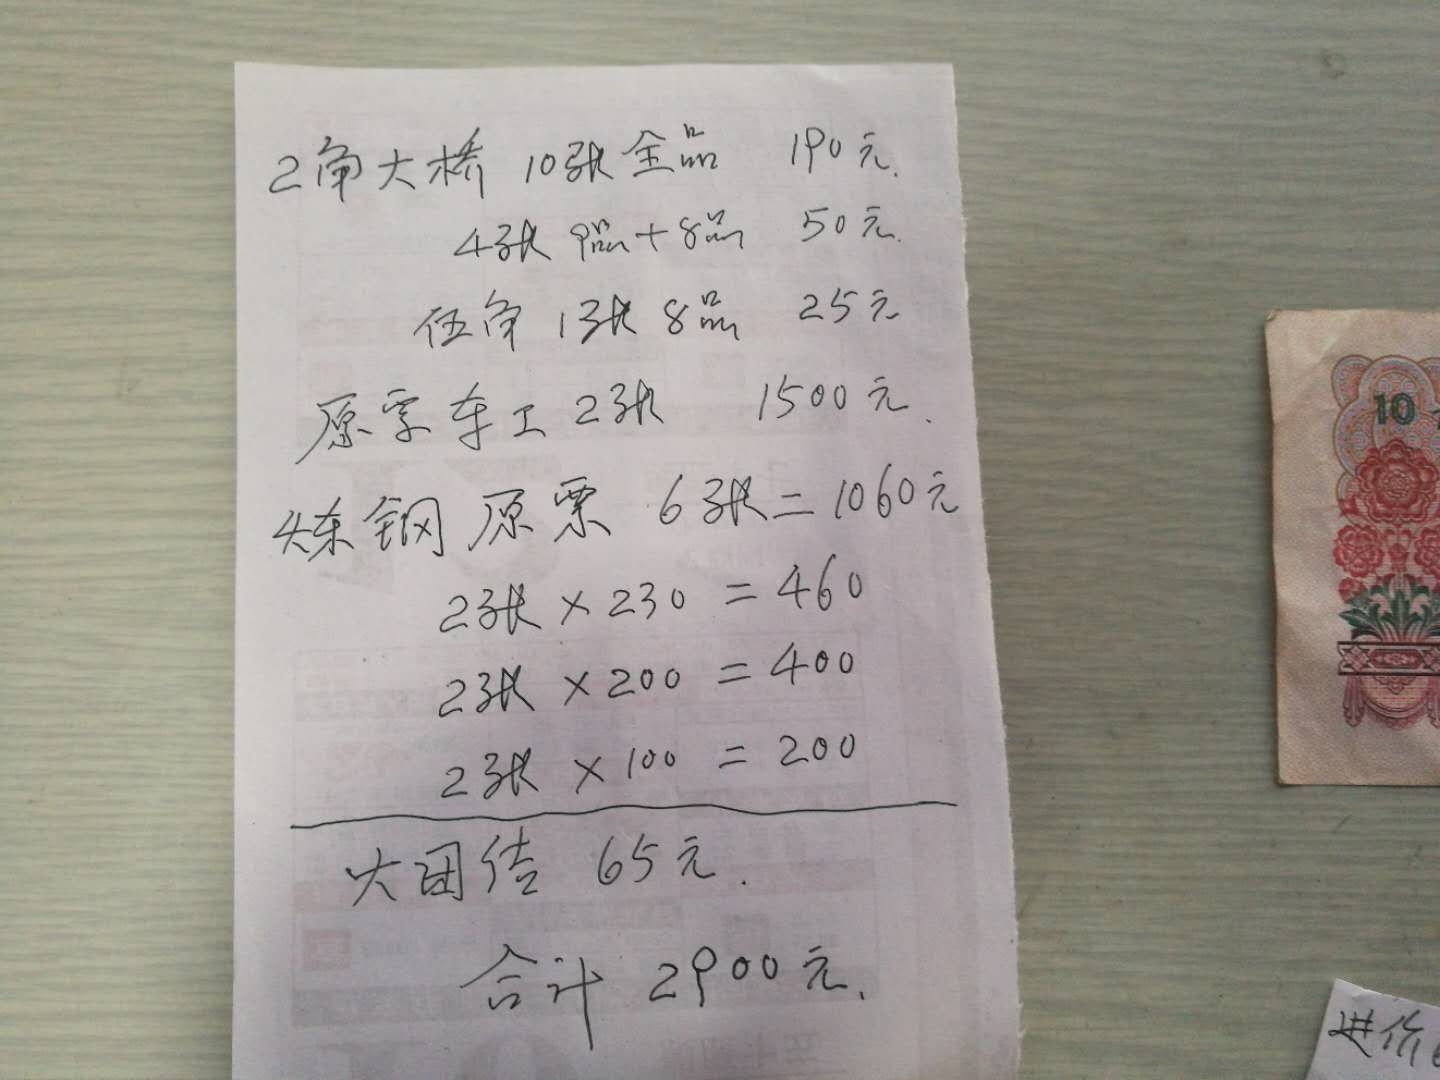 2角大桥 10张全品 190元.
4张 9品+8品 50元.
伍角 1张 8品 25元
原字车工 2张 1500元.
炼钢原票 6张=1060元
2张×230=460
2张×200=400
2张×100=200
大团结 65元.
合计 2900元.
10
进价